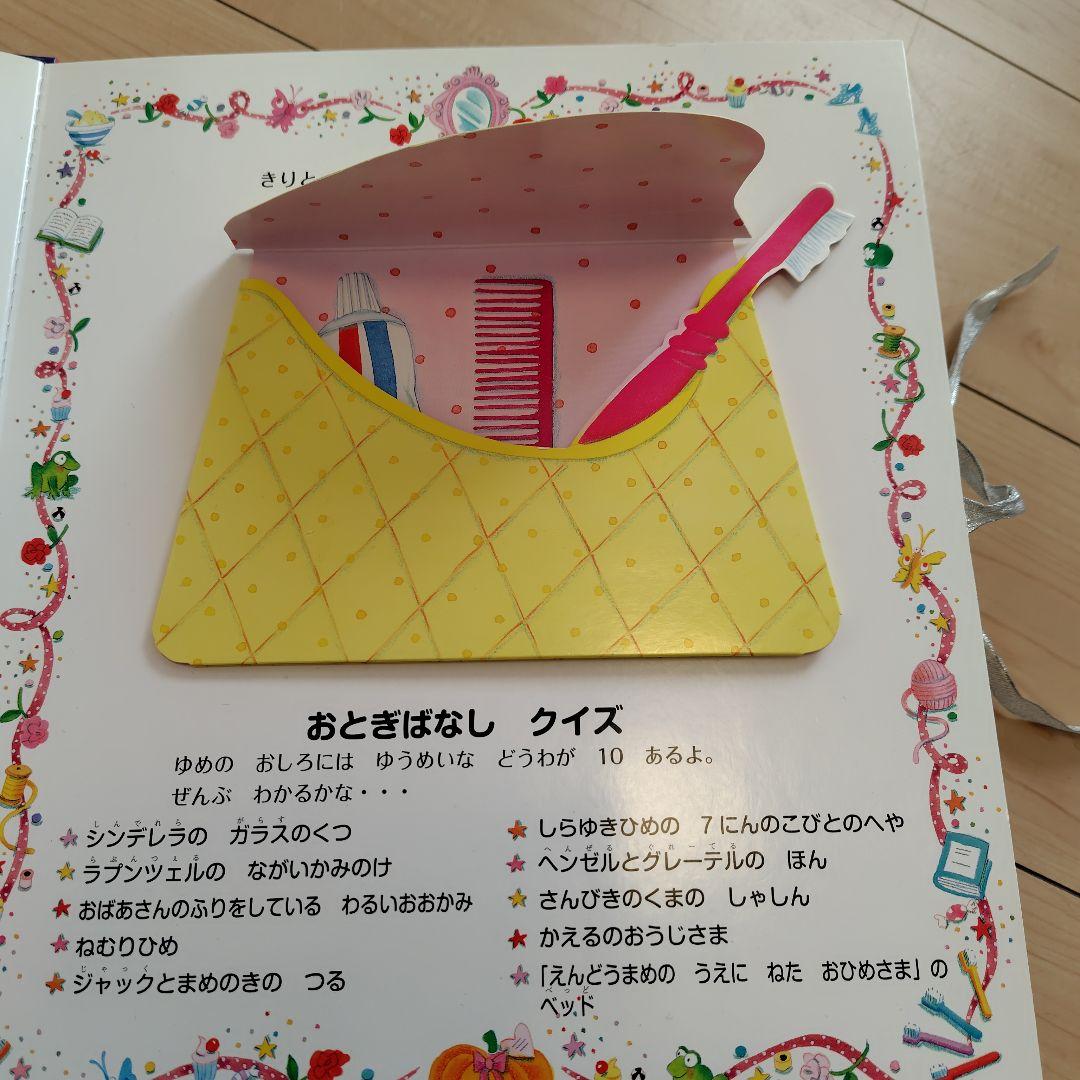 きりと
おとぎばなし　クイズ
ゆめの　おしろには　ゆうめいな　どうわが　10　あるよ。
ぜんぶ　わかるかな・・・
しんでれら　がらす
シンデレラの　ガラスのくつ
らぷんつぇる
ラプンツェルの　ながいかみのけ
おばあさんのふりをしている　わるいおおかみ
ねむりひめ
じゃっく
ジャックとまめのきの　つる
しらゆきひめの　7にんのこびとのへや
へんぜる　ぐれーてる
ヘンゼルとグレーテルの　ほん
さんびきのくまの　しゃしん
かえるのおうじさま
「えんどうまめの　うえに　ねた　おひめさま」の
べっど
ベッド